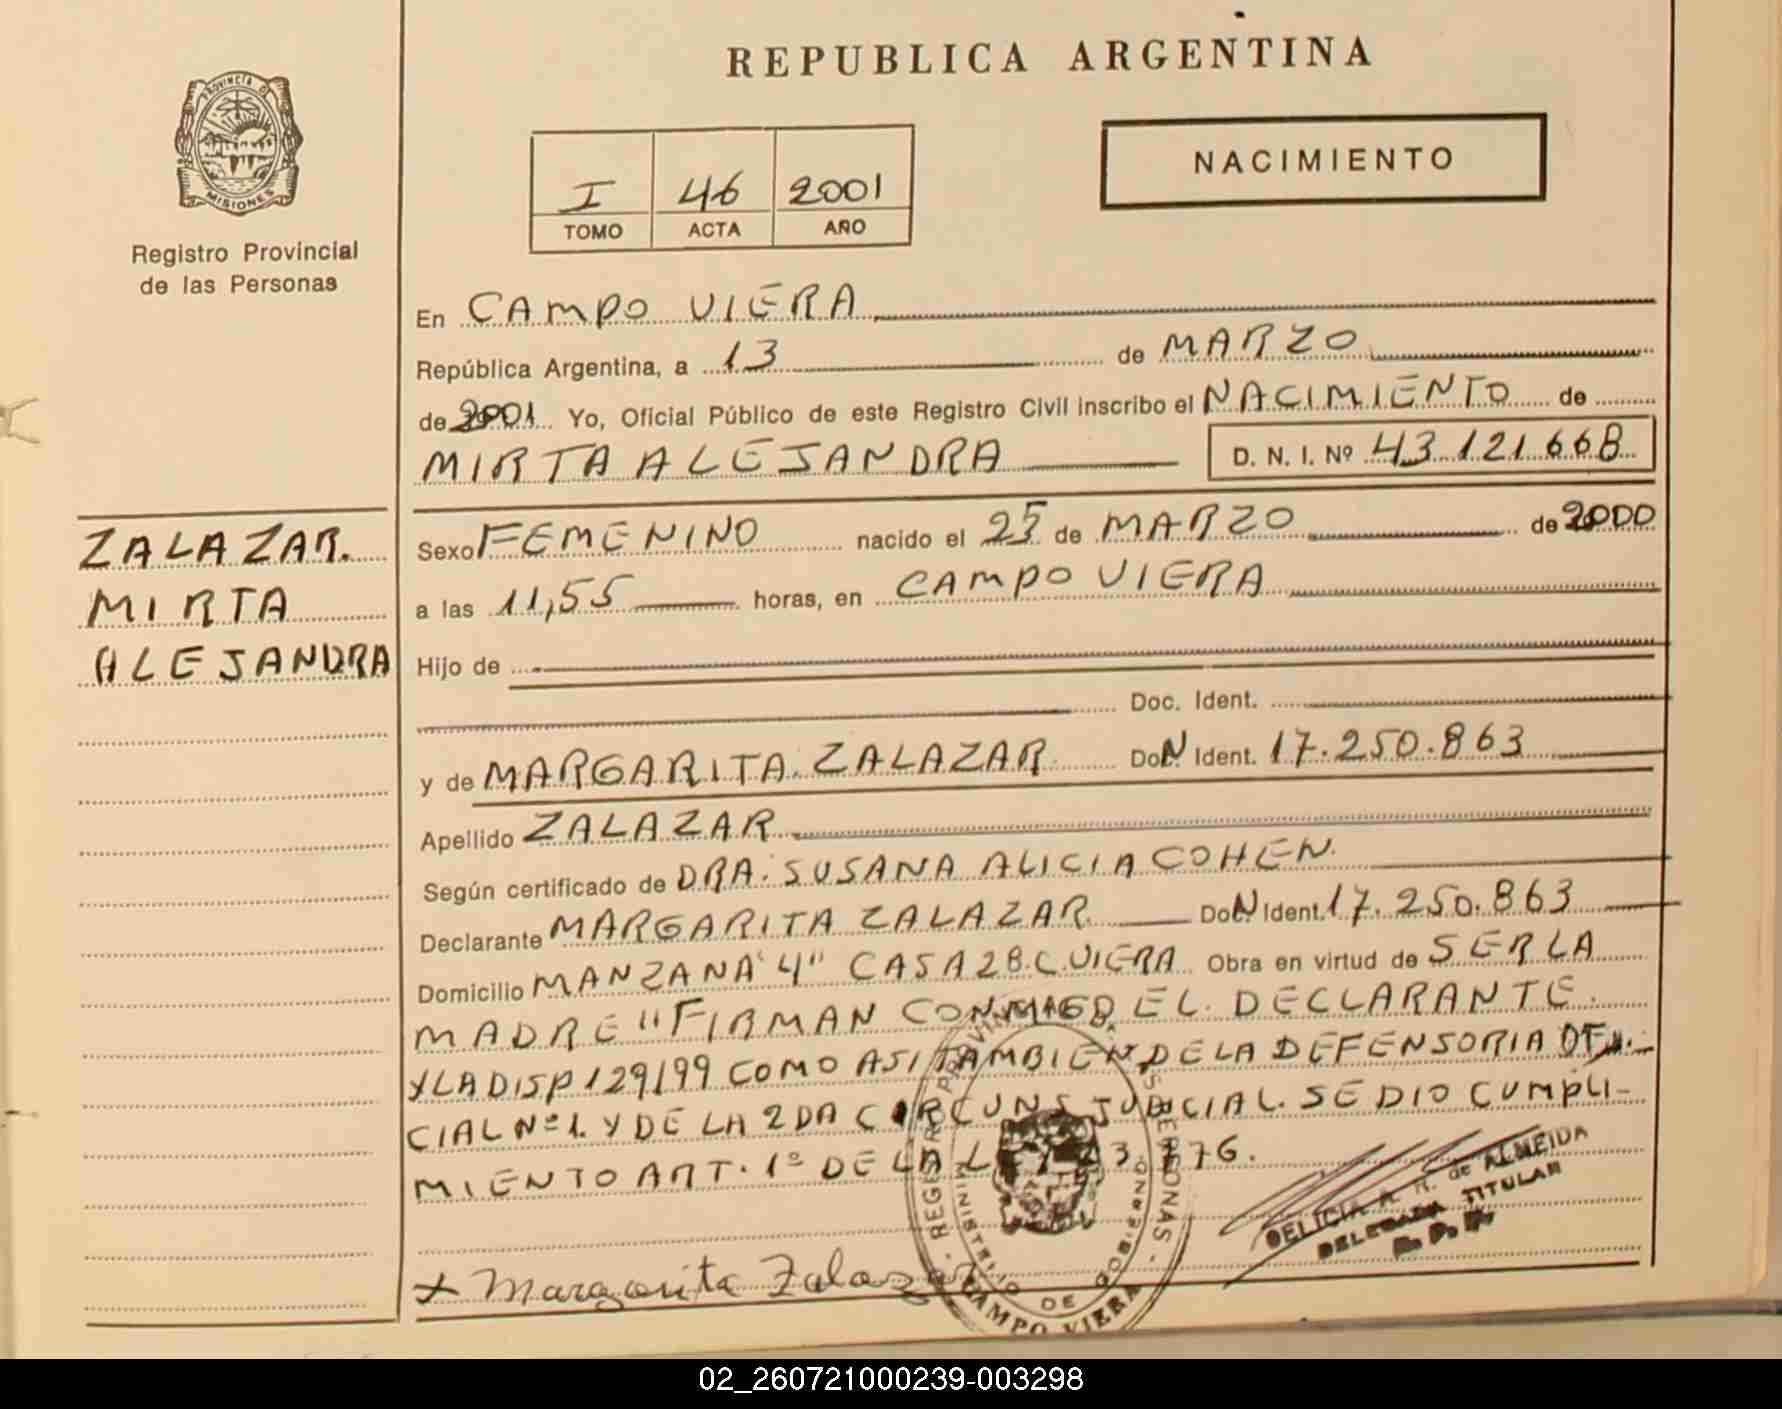 PROVINCIA DE
MISIONES
Registro Provincial
de las Personas
ZALAZAR.
MIRTA
ALEJANDRA
REPUBLICA ARGENTINA
NACIMIENTO
I 46 2001
TOMO ACTA AÑO
En CAMPO VIERA
República Argentina, a 13 de MARZO
de 2001 Yo, Oficial Público de este Registro Civil inscribo el NACIMIENTO de
MIRTA ALEJANDRA D. N. I. Nº 43.121.668
Sexo FEMENINO nacido el 25 de MARZO de 2000
a las 11,55 horas, en CAMPO VIERA
Hijo de
Doc. Ident.
y de MARGARITA ZALAZAR Ident. 17.250.863
Apellido ZALAZAR
Según certificado de DRA. SUSANA ALICIA COHEN.
Declarante MARGARITA ZALAZAR Ident. 17.250.863
Domicilio MANZANA "4" CASA 28.C.VIERA Obra en virtud de SER LA
MADRE" FIRMAN CONMIGO EL DECLARANTE.
Y LA DISP 129/99 COMO ASI TAMBIEN DE LA DEFENSORIA OFI-
CIAL Nº 1. Y DE LA 2DA CIRCUNS JUDICIAL. SE DIO CUMPLI-
MIENTO ART. 1º DE LA
x Margarita Zalazar
REGISTRO PROVINCIAL PERSONAS -
MINISTERIO DE GOBIERNO
CAMPO VIERA
DELICIA R. de ALMEIDA
DELEGADA TITULAR
02_260721000239-003298